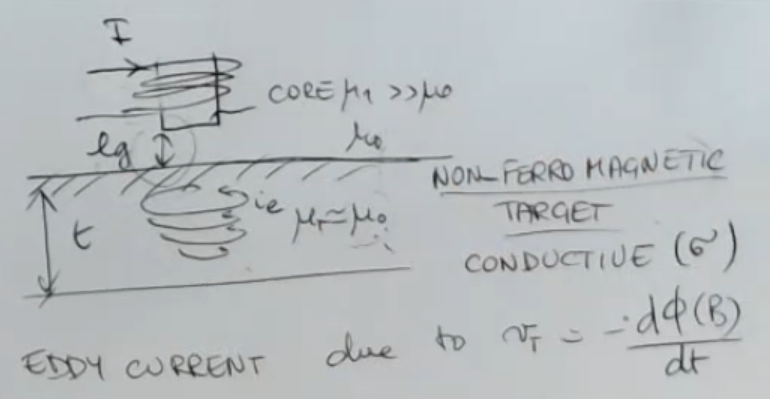 I
CORE μ₁ >> μ₀
lg
μ₀
NON-FERROMAGNETIC
TARGET
t
ie
μᵣ ≃ μ₀
CONDUCTIVE (σ)
EDDY CURRENT due to v_T = - dΦ(B)/dt